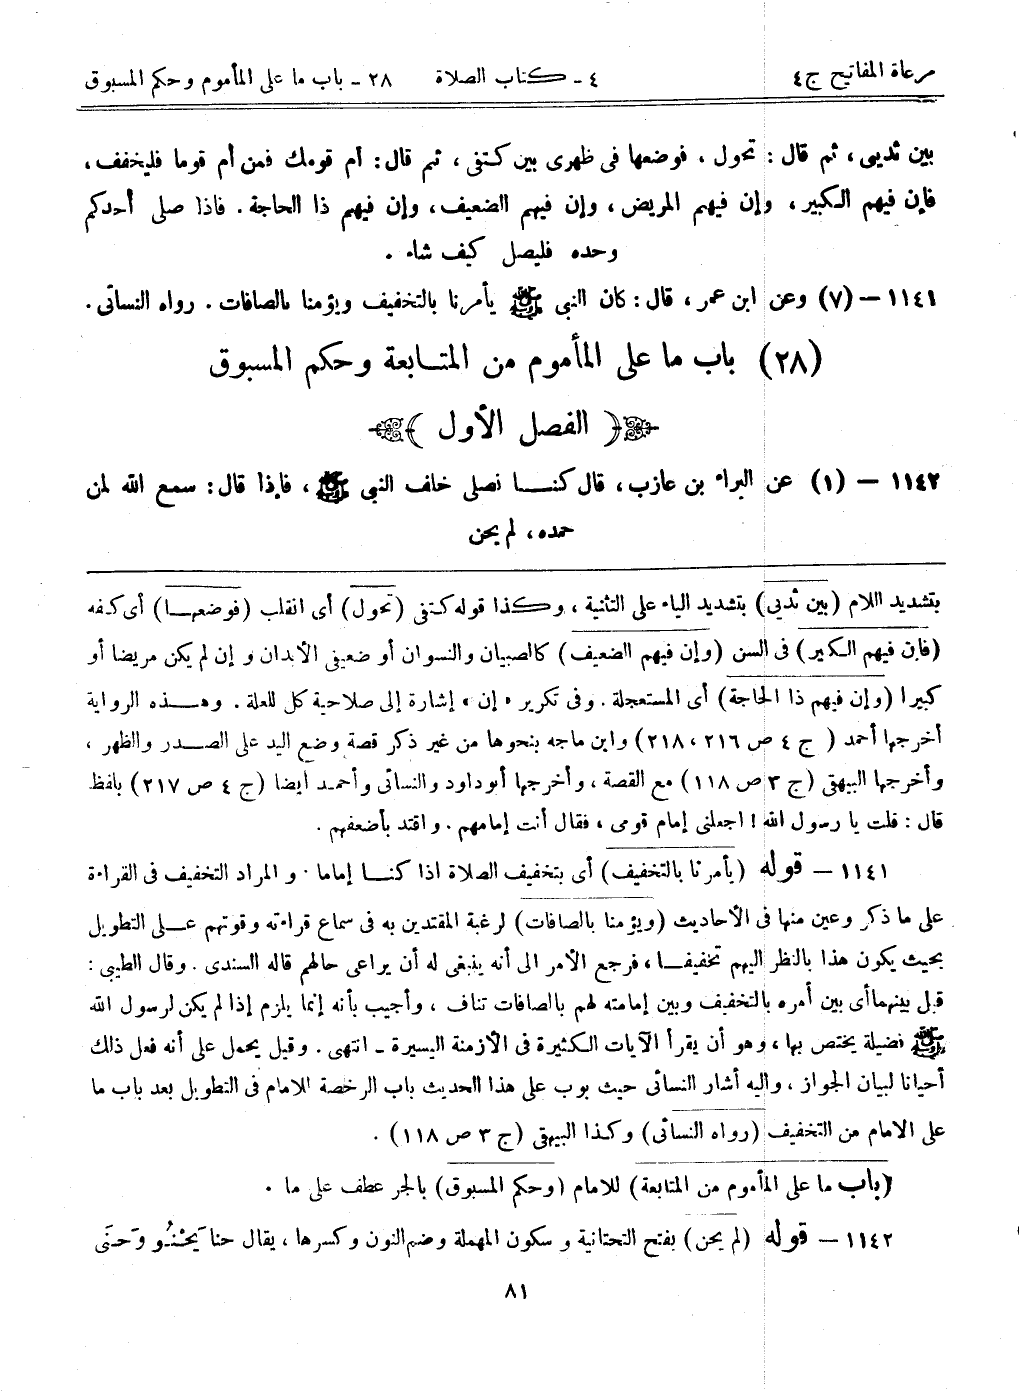 مرعاة المفاتيح ج ٤ ٤ - كتاب الصلاة ٢٨ - باب ما على المأموم وحكم المسبوق
بين ثديى، ثم قال: تحول. فوضعها فى ظهرى بين كتفى، ثم قال: أم قومك فمن أم قوما فليخفف،
فإن فيهم الكبير، وإن فيهم المريض، وإن فيهم الضعيف، وإن فيهم ذا الحاجة. فاذا صلى أحدكم
وحده فليصل كيف شاء.
١١٤١ - (٧) وعن ابن عمر، قال: كان النبى ﷺ يأمرنا بالتخفيف ويؤمنا بالصافات. رواه النسائى.
(٢٨) باب ما على المأموم من المتابعة وحكم المسبوق
﴿ الفصل الأول ﴾
١١٤٢ - (١) عن البراء بن عازب، قال كنا نصلى خلف النبى ﷺ، فإذا قال: سمع الله لمن
حمده، لم يحن
بتشديد اللام (بين ثديي) بتشديد الياء على التثنية، وكذا قوله كتفى (تحول) أى انقلب (فوضعها) أى كفه
(فإن فيهم الكبير) فى السن (وإن فيهم الضعيف) كالصبيان والنسوان أو ضعيفى الأبدان و إن لم يكن مريضا أو
كبيرا (وإن فيهم ذا الحاجة) أى المستعجلة. وفى تكرير «إن» إشارة إلى صلاحية كل للعلة. وهذه الرواية
أخرجها أحمد ( ج ٤ ص ٢١٦، ٢١٨) وابن ماجه بنحوها من غير ذكر قصة وضع اليد على الصدر والظهر،
وأخرجها البيهقى (ج ٣ ص ١١٨) مع القصة، وأخرجها أبوداود والنسائى وأحمد أيضا (ج ٤ ص ٢١٧) بلفظ
قال: قلت يا رسول الله! اجعلنى إمام قومى، فقال أنت إمامهم. واقتد بأضعفهم.
١١٤١ - قوله (يأمرنا بالتخفيف) أى بتخفيف الصلاة اذا كنا إماما. و المراد التخفيف فى القراءة
على ما ذكر وعين منها فى الأحاديث (ويؤمنا بالصافات) لرغبة المقتدين به فى سماع قراءته وقوتهم على التطويل
بحيث يكون هذا بالنظر اليهم تخفيفا، فرجع الأمر الى أنه ينبغى له أن يراعى حالهم قاله السندى. وقال الطيبى:
قيل بينهما أى بين أمره بالتخفيف وبين إمامته لهم بالصافات تناف، وأجيب بأنه إنما يلزم إذا لم يكن لرسول الله
ﷺ فضيلة يختص بها، وهو أن يقرأ الآيات الكثيرة فى الأزمنة اليسيرة - انتهى. وقيل يحمل على أنه فعل ذلك
أحيانا لبيان الجواز، واليه أشار النسائى حيث بوب على هذا الحديث باب الرخصة للامام فى التطويل بعد باب ما
على الامام من التخفيف (رواه النسائى) وكذا البيهقى (ج ٣ ص ١١٨).
(باب ما على المأموم من المتابعة) للامام (وحكم المسبوق) بالجر عطف على ما.
١١٤٢ - قوله (لم يحن) بفتح التحتانية و سكون المهملة وضم النون وكسرها، يقال حنا يَحْنُو وَحَنَى
٨١